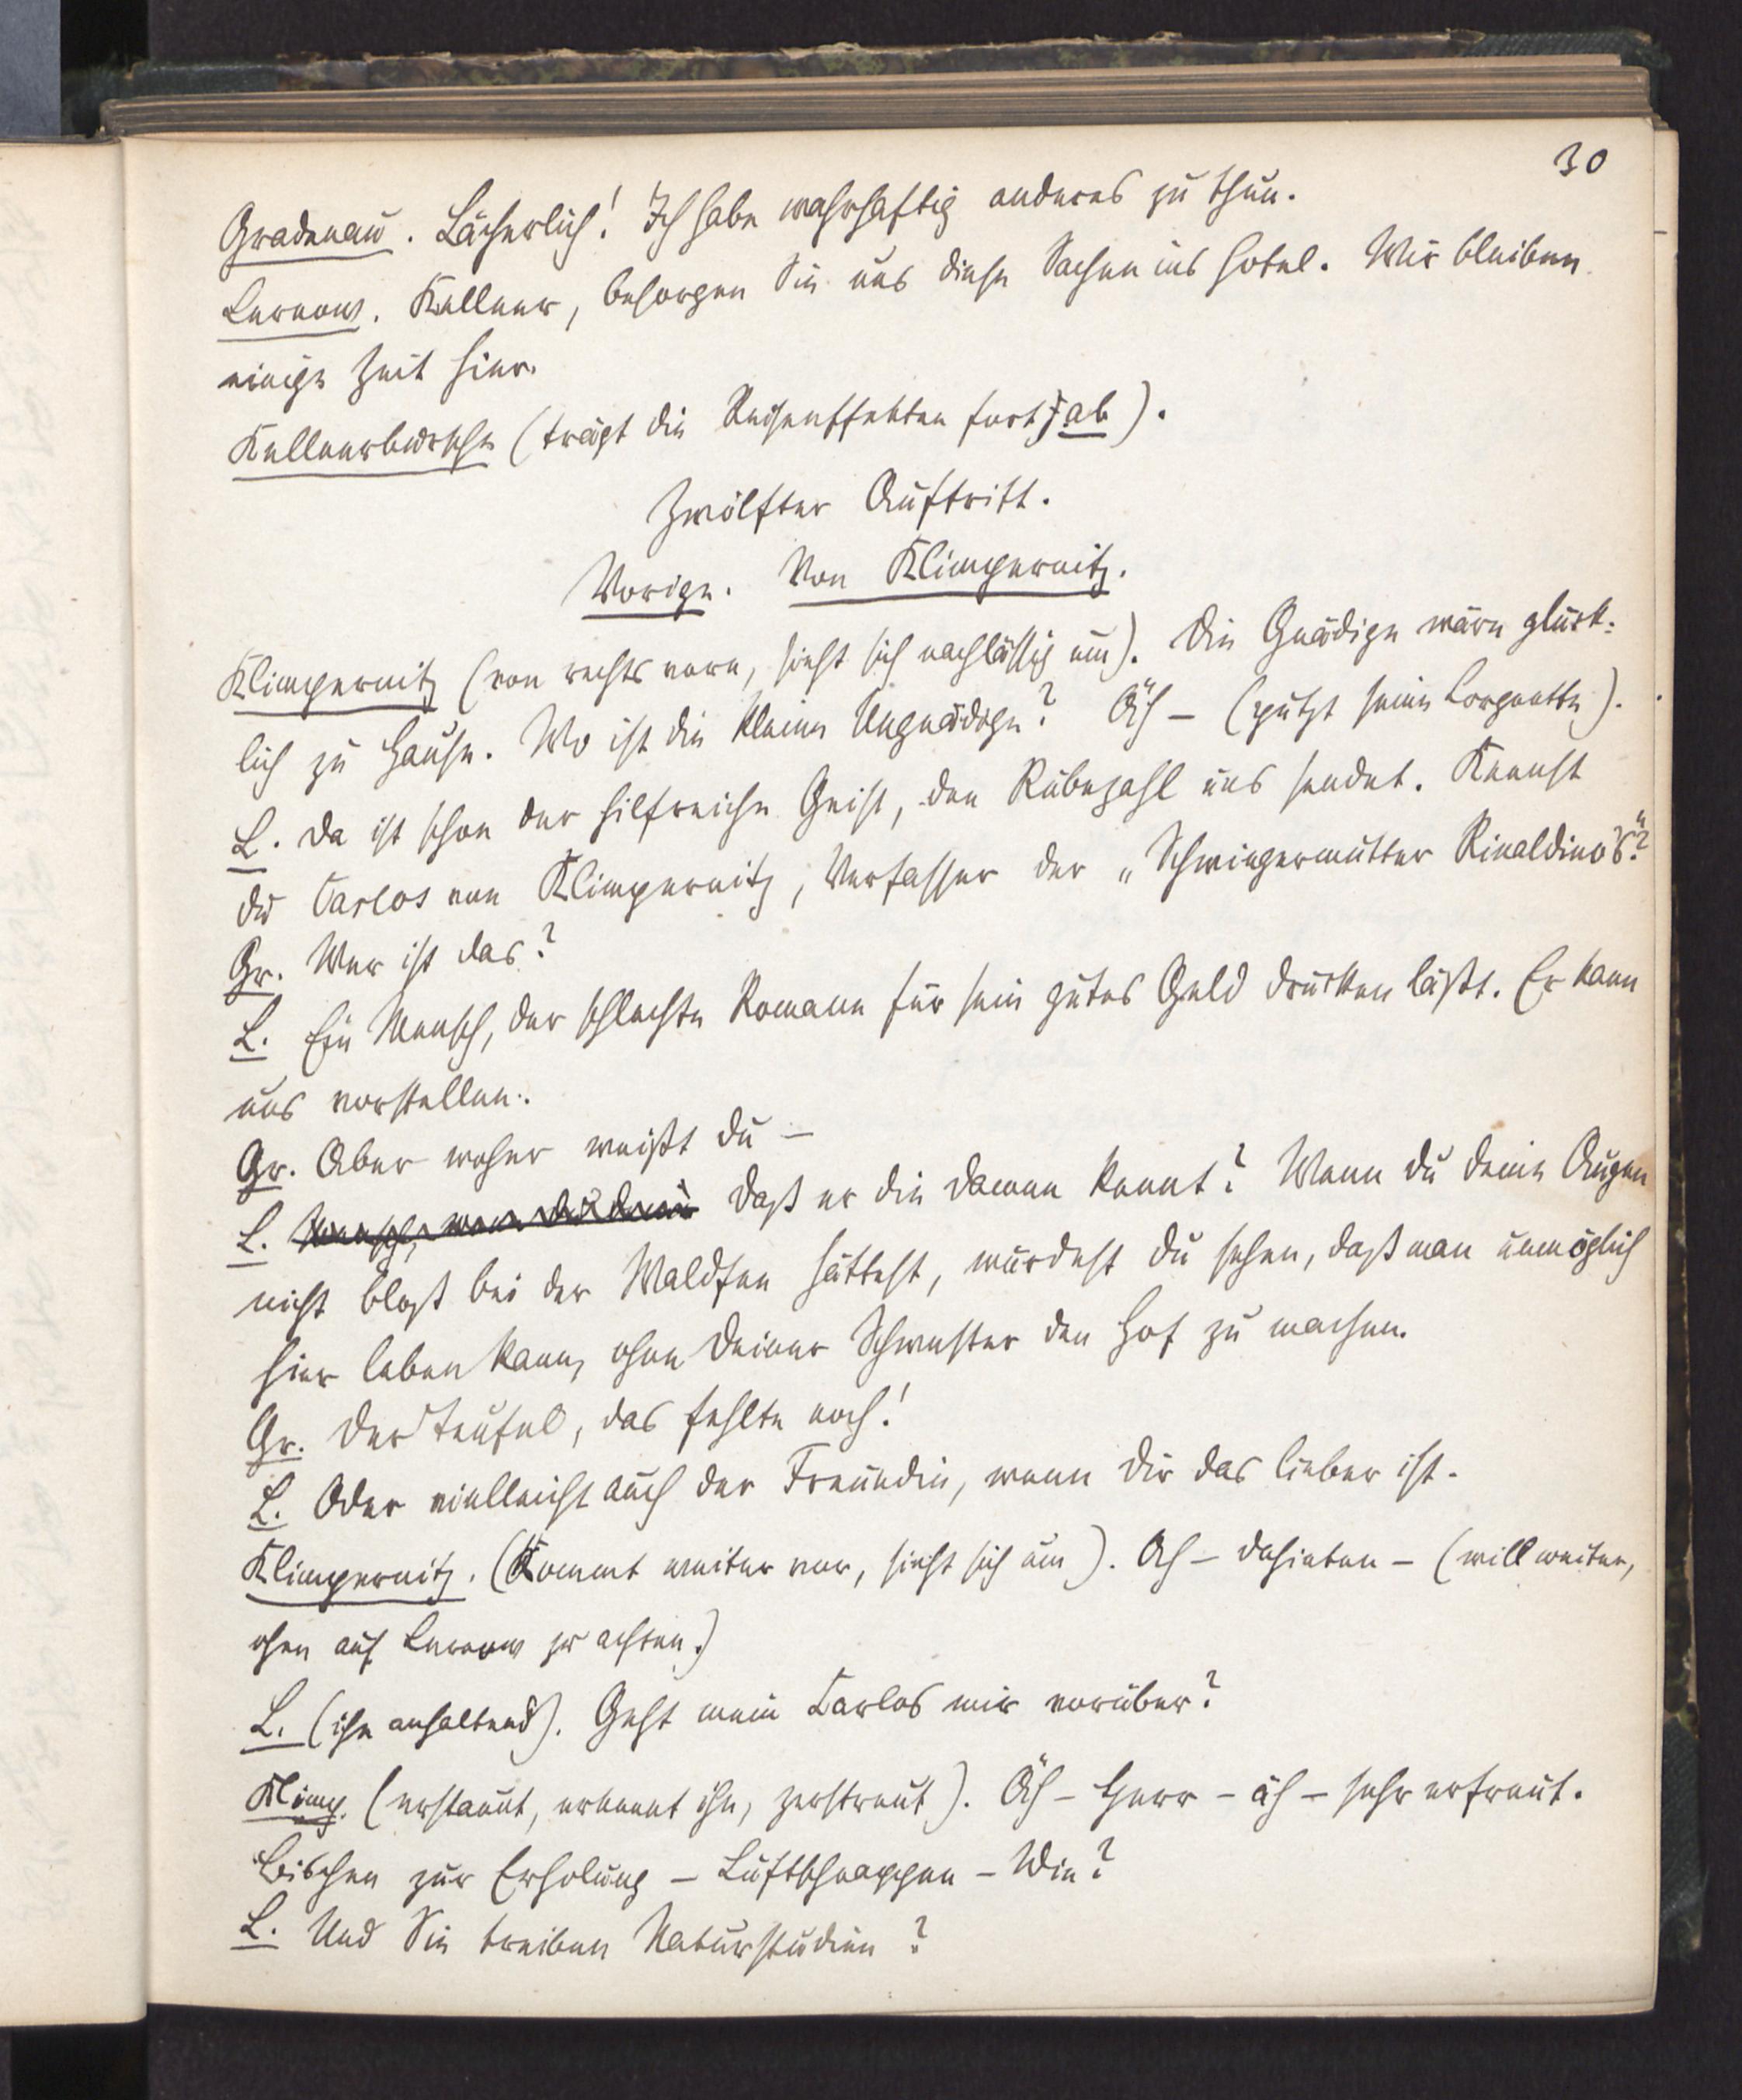 30
Gradenau. Lächerlich! Ich habe wahrhaftig anderes zu thun.
Lernow. Kellner, besorgen Sie uns diese Sachen ins Hotel. Wir bleiben
einige Zeit hier.
Kellnerbursche (trägt die Reiseeffekten fort, ab).
Zwölfter Auftritt.
Vorige. Von Klimpernitz.
Klimpernitz (von rechts vorn, sieht sich nachlässig um). Die Gnädige wäre glück-
lich zu Hause. Wo ist die kleine Ungnädige? Äh – (putzt seine Lorgnette).
L. Da ist schon der hilfreiche Geist, den Rübezahl uns sendet. Kennst
du Carlos von Klimpernitz, Verfasser der „Schwiegermutter Rinaldinos“?
Gr. Wer ist das?
L. Ein Mensch, der schlechte Romane für sein gutes Geld drucken läßt. Er kann
uns vorstellen.
Gr. Aber woher weißt du –
L. Daß er die Damen kennt? Wenn du deine Augen
nicht bloß bei der Waldfee hättest, würdest du sehen, daß man unmöglich
hier leben kann, ohne deiner Schwester den Hof zu machen.
Gr. Der Teufel, das fehlte noch!
L. Oder vielleicht auch der Freundin, wenn dir das lieber ist.
Klimpernitz. (Kommt weiter vor, sieht sich um). Ah – dahinten – (will weiter,
ohne auf Lernow zu achten.)
L. (ihn anhaltend). Geht mein Carlos mir vorüber?
Klimp. (erstaunt, erkennt ihn, zerstreut). Äh – Herr – äh – sehr erfreut.
Bischen zur Erholung – Luftschnappen – Wie?
L. Und Sie treiben Naturstudien?